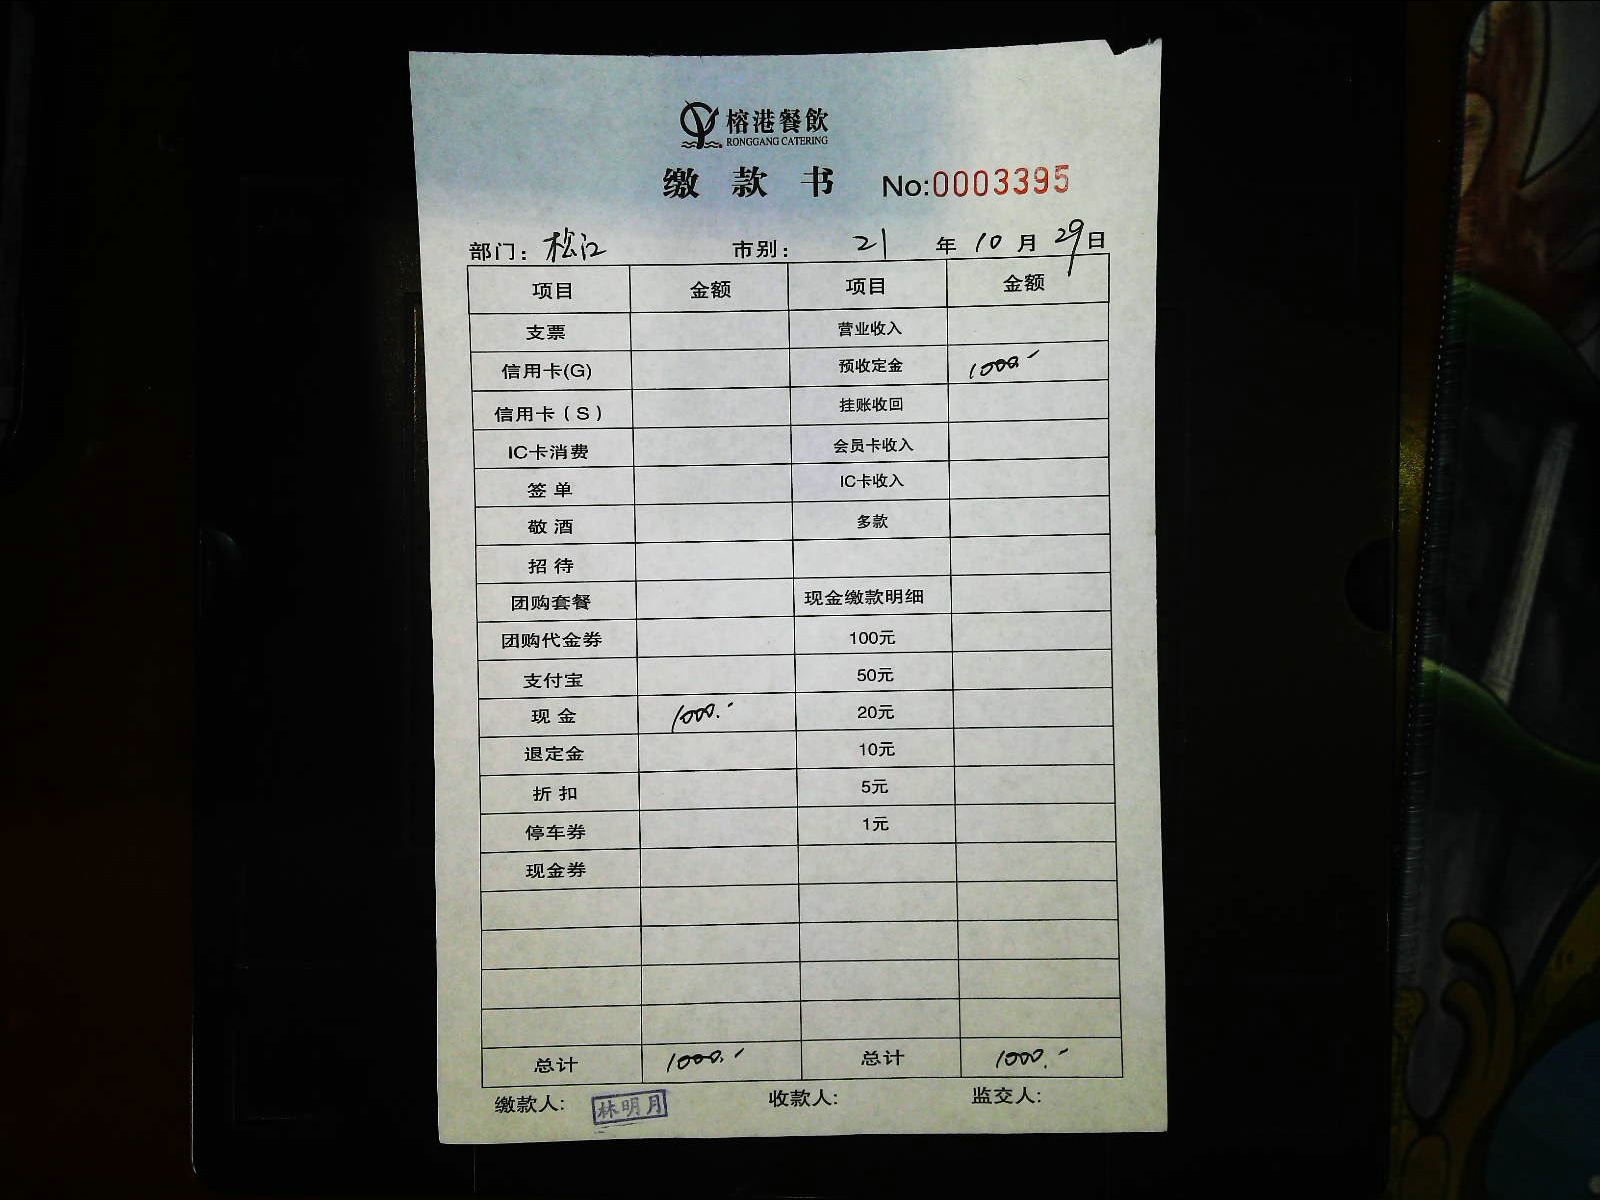 榕港餐飲
RONGGANG CATERING
缴款书 No:0003395
部门: 松江 市别: 21年10月29日
项目 金额 项目 金额
支票 营业收入
信用卡(G) 预收定金 1000.-
信用卡(S) 挂账收回
IC卡消费 会员卡收入
签单 IC卡收入
敬酒 多款
招待
团购套餐 现金缴款明细
团购代金券 100元
支付宝 50元
现金 1000.- 20元
退定金 10元
折扣 5元
停车券 1元
现金券
总计 1000.- 总计 1000.-
缴款人: 林明月 收款人: 监交人: